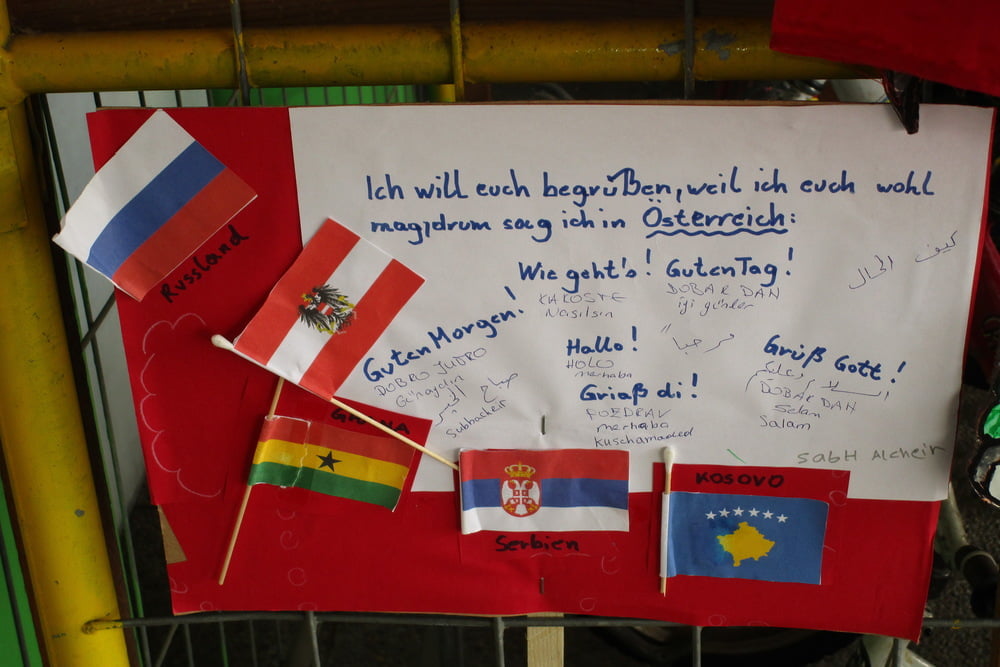 Ich will euch begrüßen, weil ich euch wohl
mag, drum sag ich in Österreich:
Wie geht's!
KAKOSTE
Nasilsin
Guten Tag!
DOBAR DAN
iyi günler
كيف الحال
Guten Morgen!
DOBRO JUTRO
Günaydin
صباح الخير
Subhacheir
Hallo!
HOLO
merhaba
مرحبا
Griaß di!
POZDRAV
merhaba
Kuschamaded
Grüß Gott!
DOBAR DAN
Selam
Salam
SabH Alcheir
Russland
GHANA
Serbien
KOSOVO